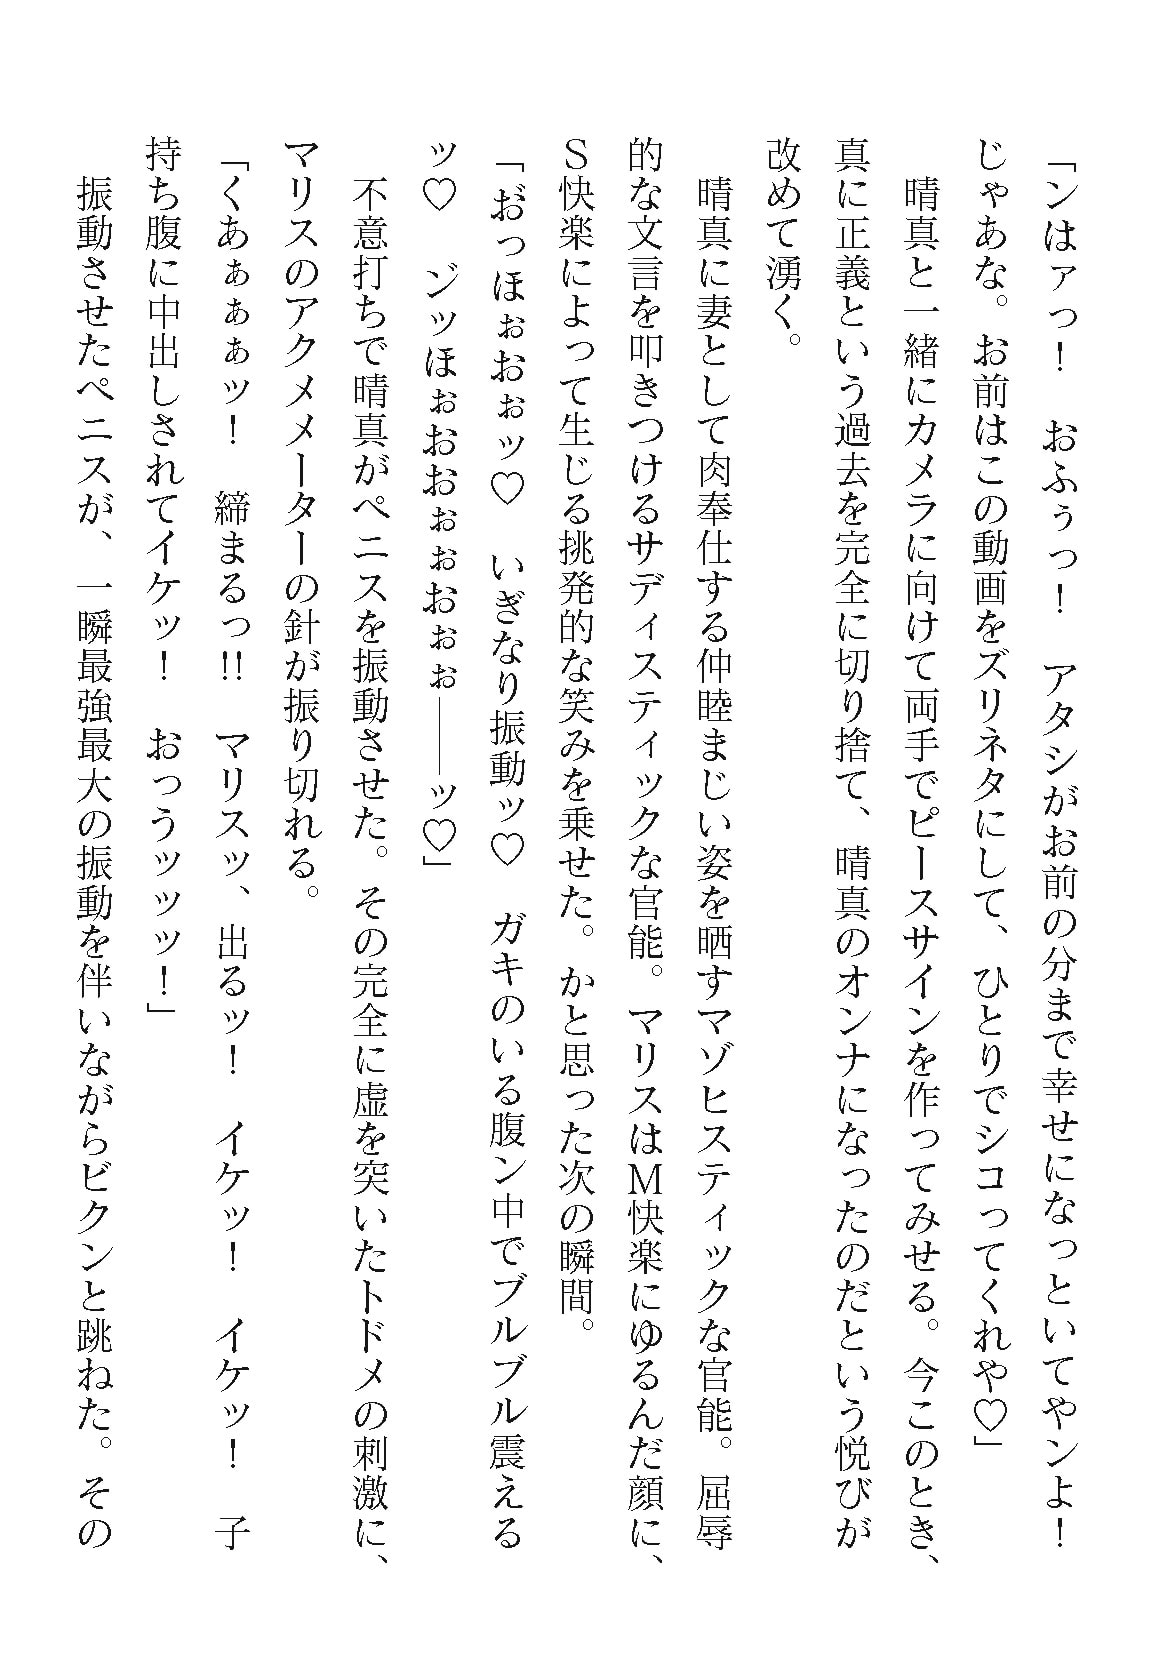 「ンはァっ！　おふぅっ！　アタシがお前の分まで幸せになっといてやンよ！
じゃあな。お前はこの動画をズリネタにして、ひとりでシコってくれや♡」
　晴真と一緒にカメラに向けて両手でピースサインを作ってみせる。今このとき、
真に正義という過去を完全に切り捨て、晴真のオンナになったのだという悦びが
改めて湧く。
　晴真に妻として肉奉仕する仲睦まじい姿を晒すマゾヒスティックな官能。屈辱
的な文言を叩きつけるサディスティックな官能。マリスはＭ快楽にゆるんだ顔に、
Ｓ快楽によって生じる挑発的な笑みを乗せた。かと思った次の瞬間。
「お゛っほぉおぉッ♡　いぎなり振動ッ♡　ガキのいる腹ン中でブルブル震える
ッ♡　ジッほぉおおぉぉおぉぉ――ッ♡」
　不意打ちで晴真がペニスを振動させた。その完全に虚を突いたトドメの刺激に、
マリスのアクメメーターの針が振り切れる。
「くあぁぁぁッ！　締まるっ!!　マリスッ、出るッ！　イケッ！　イケッ！　子
持ち腹に中出しされてイケッ！　おっうッッッ！」
　振動させたペニスが、一瞬最強最大の振動を伴いながらビクンと跳ねた。その